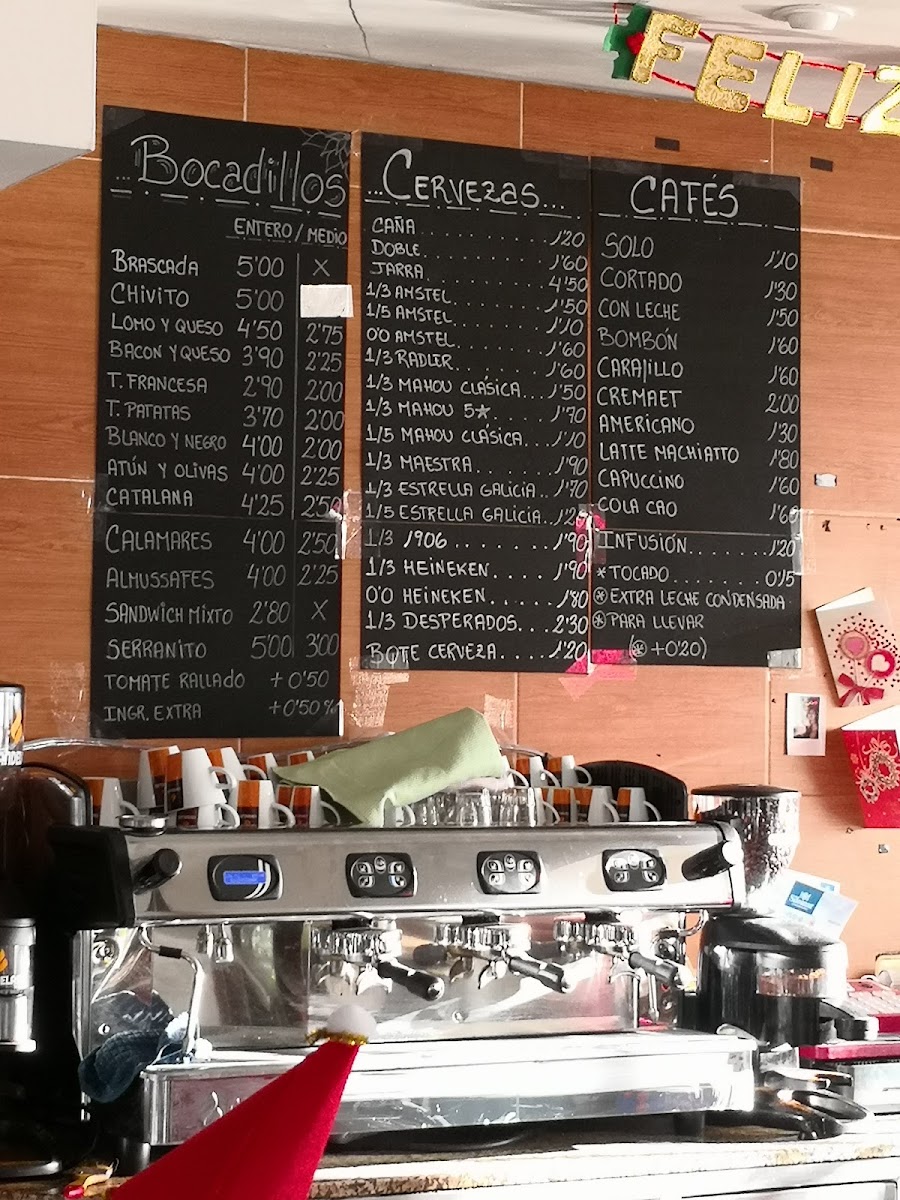 FELIZ
...Bocadillos
ENTERO / MEDIO
BRASCADA 5'00 X
CHIVITO 5'00
LOMO Y QUESO 4'50 2'75
BACON Y QUESO 3'90 2'25
T. FRANCESA 2'90 2'00
T. PATATAS 3'70 2'00
BLANCO Y NEGRO 4'00 2'00
ATÚN Y OLIVAS 4'00 2'25
CATALANA 4'25 2'50
CALAMARES 4'00 2'50
ALMUSSAFES 4'00 2'25
SANDWICH MIXTO 2'80 X
SERRANITO 5'00 3'00
TOMATE RALLADO +0'50
INGR. EXTRA +0'50
...CERVEZAS...
CAÑA 1'20
DOBLE 1'60
JARRA 4'50
1/3 AMSTEL 1'50
1/5 AMSTEL 1'10
0'0 AMSTEL 1'60
1/3 RADLER 1'60
1/3 MAHOU CLÁSICA 1'50
1/3 MAHOU 5★ 1'70
1/5 MAHOU CLÁSICA 1'10
1/3 MAESTRA 1'90
1/3 ESTRELLA GALICIA 1'70
1/5 ESTRELLA GALICIA
1/3 1906 1'90
1/3 HEINEKEN 1'90
0'0 HEINEKEN 1'80
1/3 DESPERADOS 2'30
BOTE CERVEZA 1'20
CAFÉS
SOLO 1'10
CORTADO 1'30
CON LECHE 1'50
BOMBÓN 1'60
CARAJILLO 1'60
CREMAET 2'00
AMERICANO 1'30
LATTE MACHIATTO 1'80
CAPUCCINO 1'60
COLA CAO 1'60
INFUSIÓN 1'20
* TOCADO 0'15
⊛ EXTRA LECHE CONDENSADA
⊛ PARA LLEVAR
(⊛ +0'20)